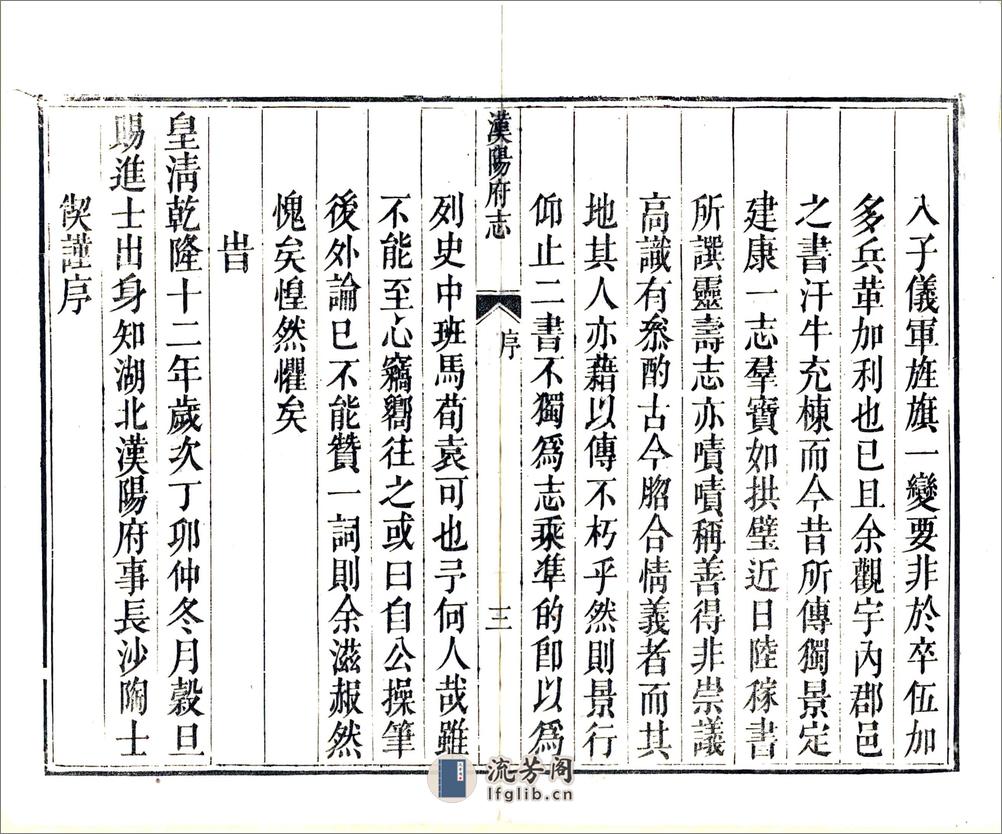 入子儀軍旌旗一變要非於卒伍加
多兵革加利也已且余觀宇內郡邑
之書汗牛充棟而今昔所傳獨景定
建康一志羣寶如拱璧近日陸稼書
所譔靈壽志亦嘖嘖稱善得非崇議
高識有叅酌古今脗合情義者而其
地其人亦藉以傳不朽乎然則景行
仰止二書不獨爲志乘準的卽以爲
漢陽府志
序
三
列史中班馬荀袁可也予何人哉雖
不能至心竊嚮往之或曰自公操筆
後外論已不能贊一詞則余滋赧然
愧矣惶然懼矣
旹
皇清乾隆十二年歲次丁卯仲冬月穀旦
賜進士出身知湖北漢陽府事長沙陶士
偰謹序
流芳阁
lfglib.cn